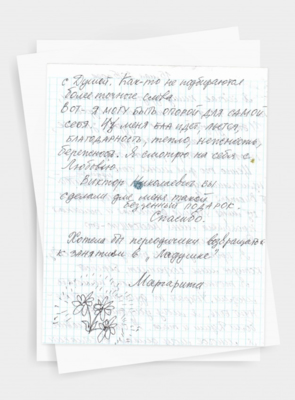 с Душой. Как-то не подберутся
более точные слова.
Вот- я могу быть опорой для самой
себя. Из меня
благодарность, тепло, нежность,
бережность. Я смотрю на себя с
Любовью.
Виктор Николаевич, вы
сделали для меня такой
бесценный подарок.
Спасибо.
Хотела бы периодически возвращаться
к занятиям в „Ладушке"
Маргарита